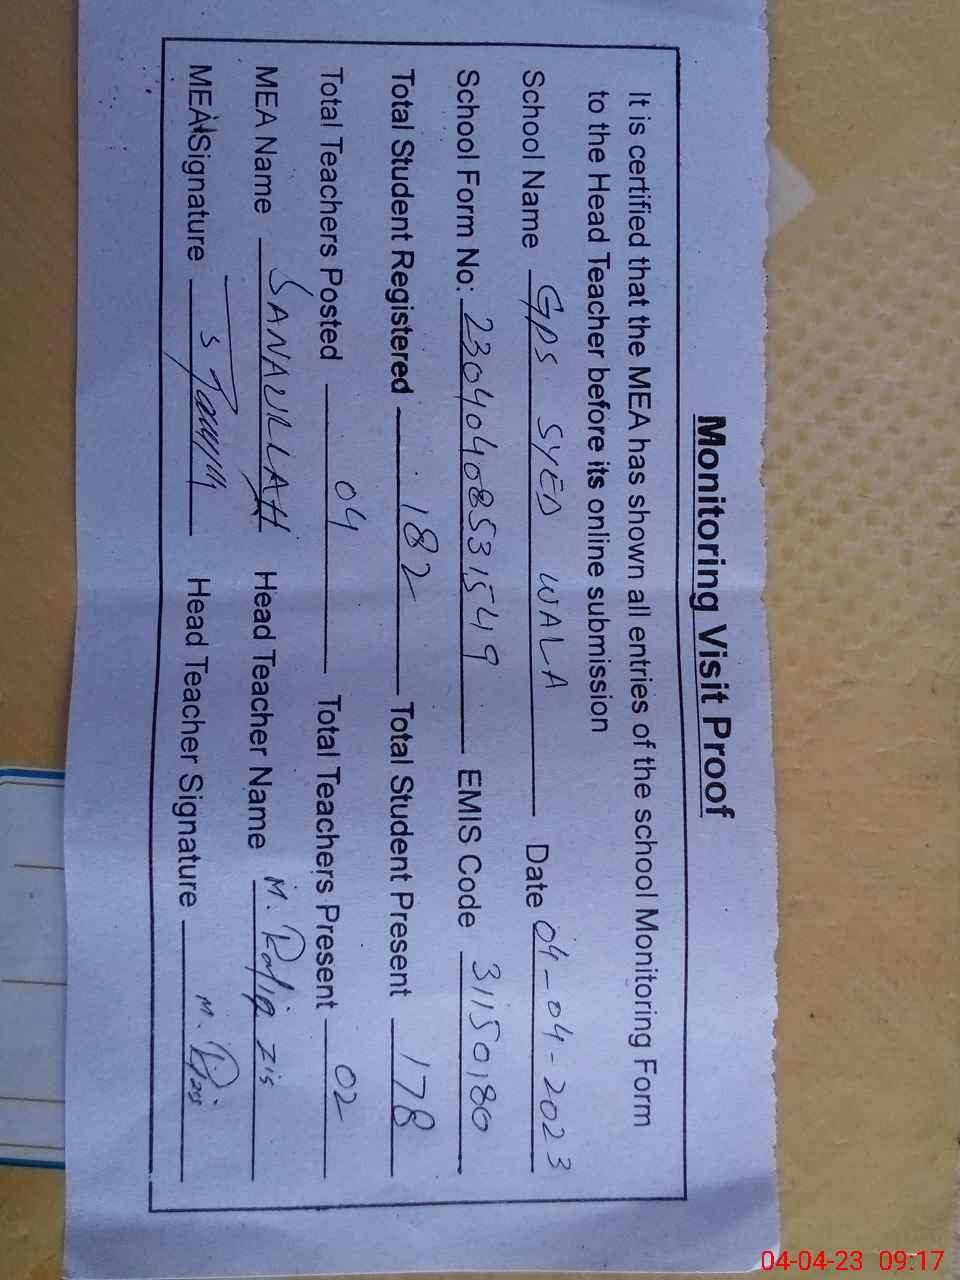 Monitoring Visit Proof
It is certified that the MEA has shown all entries of the school Monitoring Form
to the Head Teacher before its online submission
School Name GPS SYED WALA Date 04-04-2023
School Form No: 23040408531549 EMIS Code 31150180
Total Student Registered 182 Total Student Present 178
Total Teachers Posted 04 Total Teachers Present 02
MEA Name SANAULLAH Head Teacher Name M.
MEA Signature Head Teacher Signature M.
04-04-23 09:17